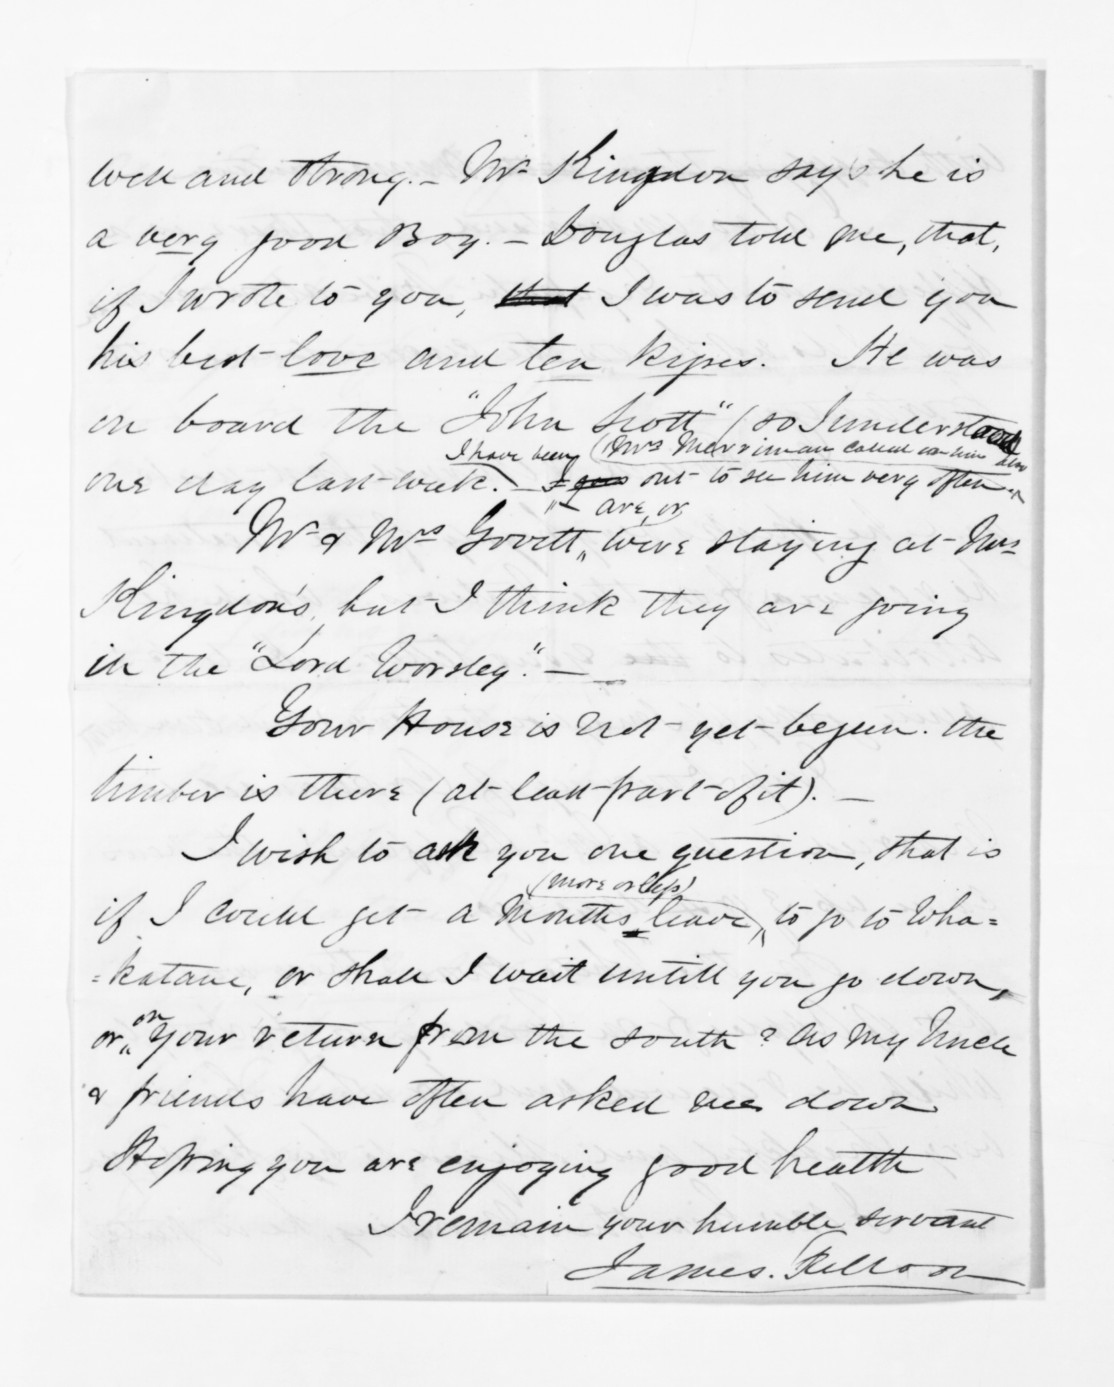 well and strong. – Mr Kingdon say's he is
a very good Boy. – Douglas told me, that,
if I wrote to you, that I was to send you
his best love and ten kisses. He was
on board the "John Scott" (so I understand
I have been (Mrs Merriman called on him also
one day last week. – I out to see him very often
are, or
Mr & Mrs Govett, were staying at Mrs
Kingdon's, but I think they are going
in the "Lord Worsley". –
Your House is not yet begun. the
timber is there (at least part of it). –
I wish to ask you one question, that is
(more or less)
if I could get a months leave, to go to Wha=
=katane, or shall I wait untill you go down,
on
or, your return from the south? As my Uncle
& friends have often asked me down
Hoping you are enjoying good health
I remain your humble servant
James.